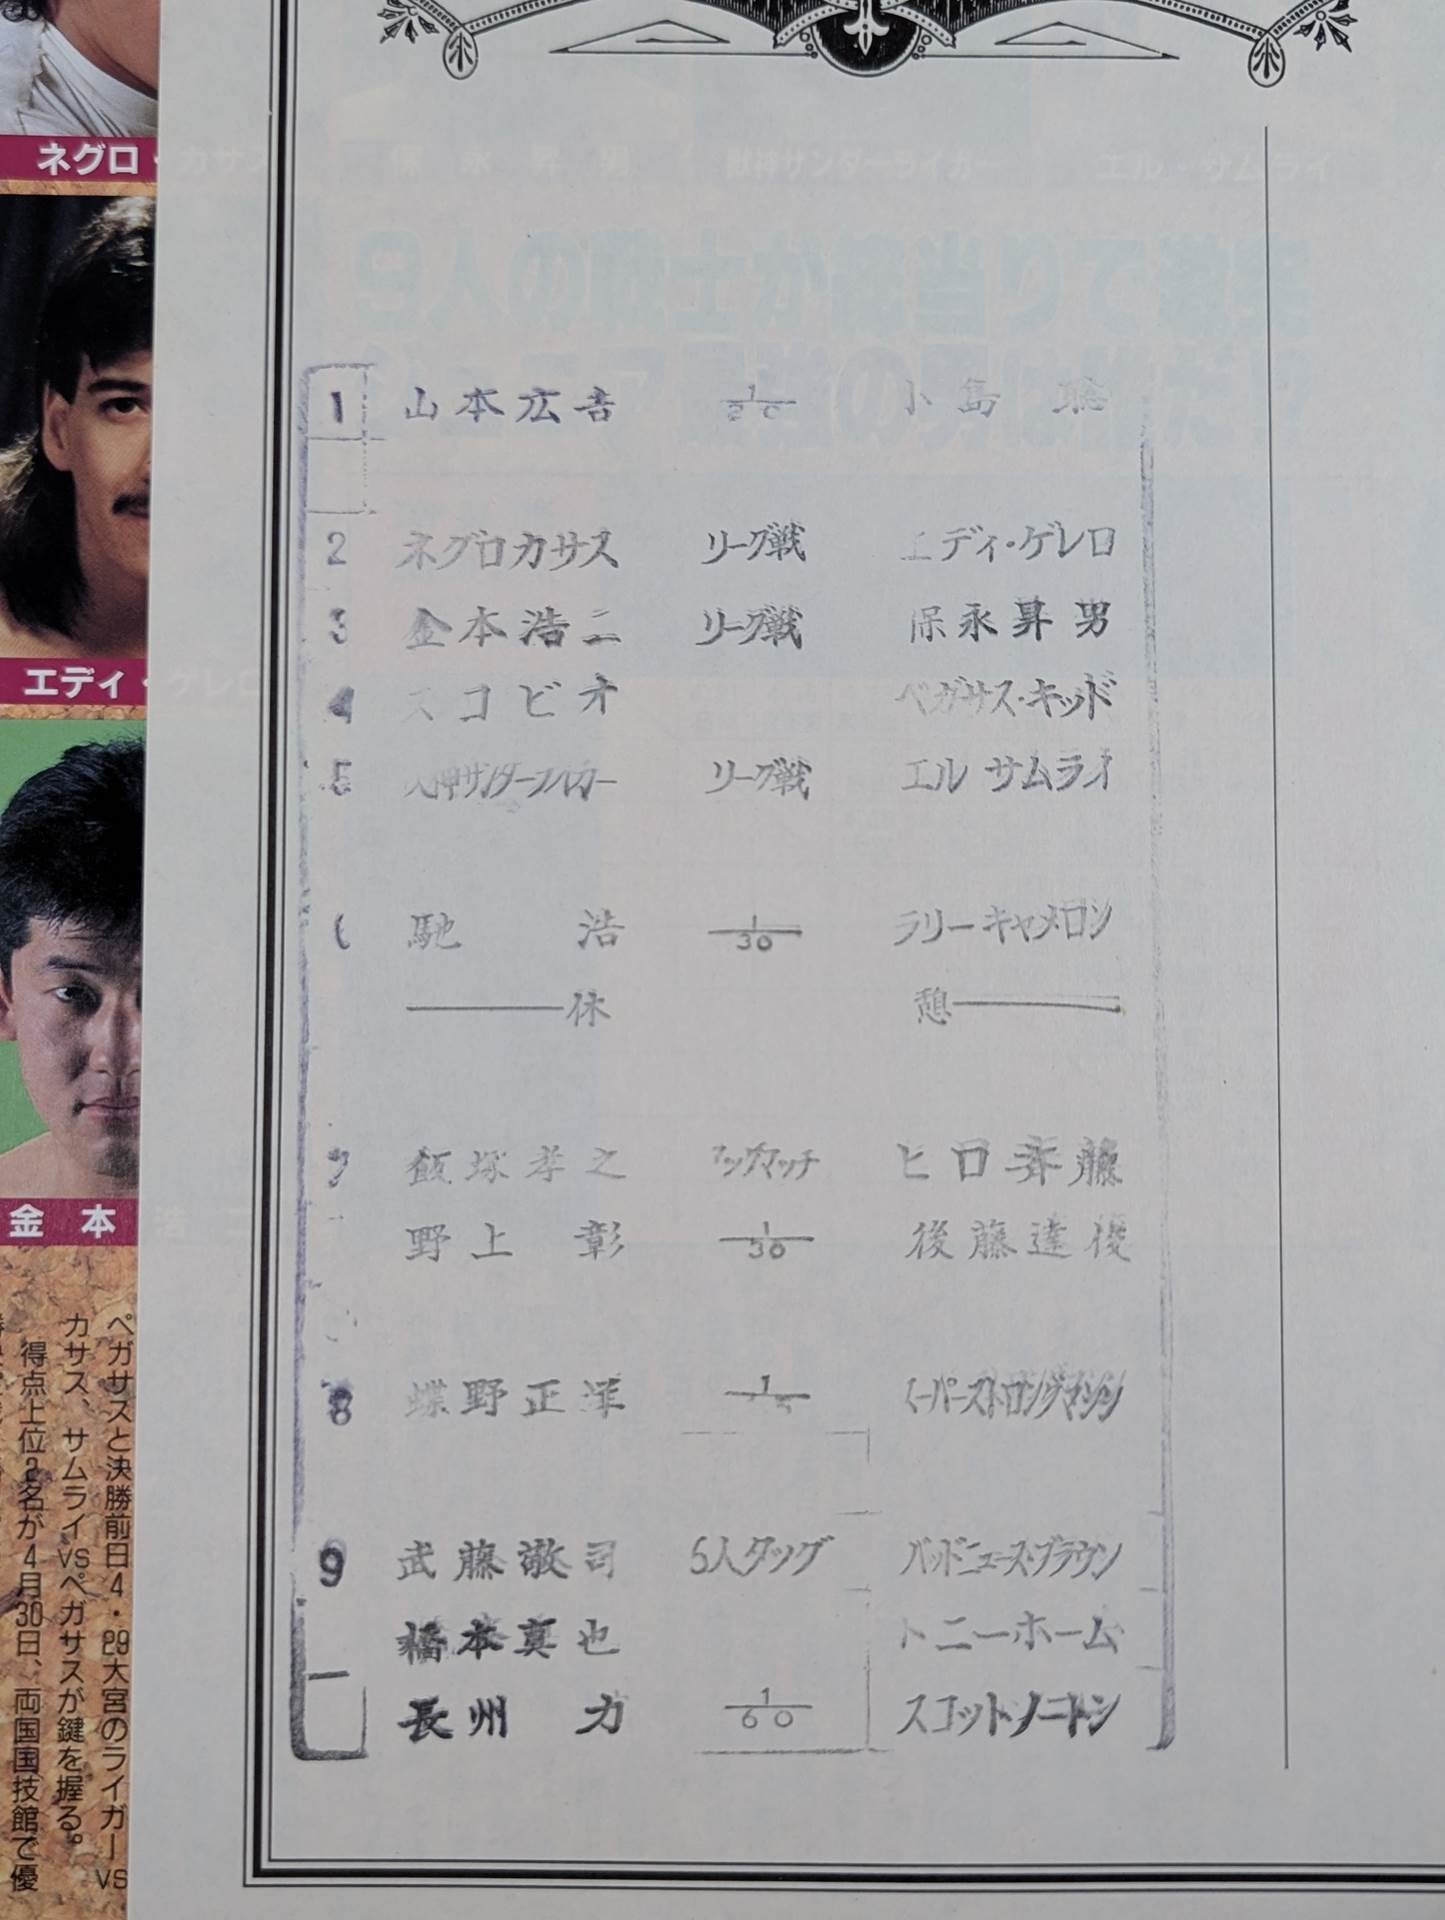 ネグロ・カサス
エディ・ゲレロ
金本浩二
1 山本広吉 1/20 小島 聡
2 ネグロカサス リーグ戦 エディ・ゲレロ
3 金本浩二 リーグ戦 保永昇男
4 スコピオ ペガサス・キッド
5 サンダーライガー リーグ戦 エル サムライ
馳 浩 1/30 ラリーキャメロン
休 憩
7 飯塚孝之 タッグマッチ ヒロ斉藤
野上 彰 1/30 後藤達俊
8 蝶野正洋 スーパーストロングマシン
9 武藤敬司 6人タッグ バッドニュース・ブラウン
橋本真也 トニーホーム
長州 力 1/60 スコット・ノートン
ペガサスと決勝前日4・29大宮のライガーVS
カサス、サムライVSペガサスが鍵を握る。
得点上位2名が4月30日、両国国技館で優